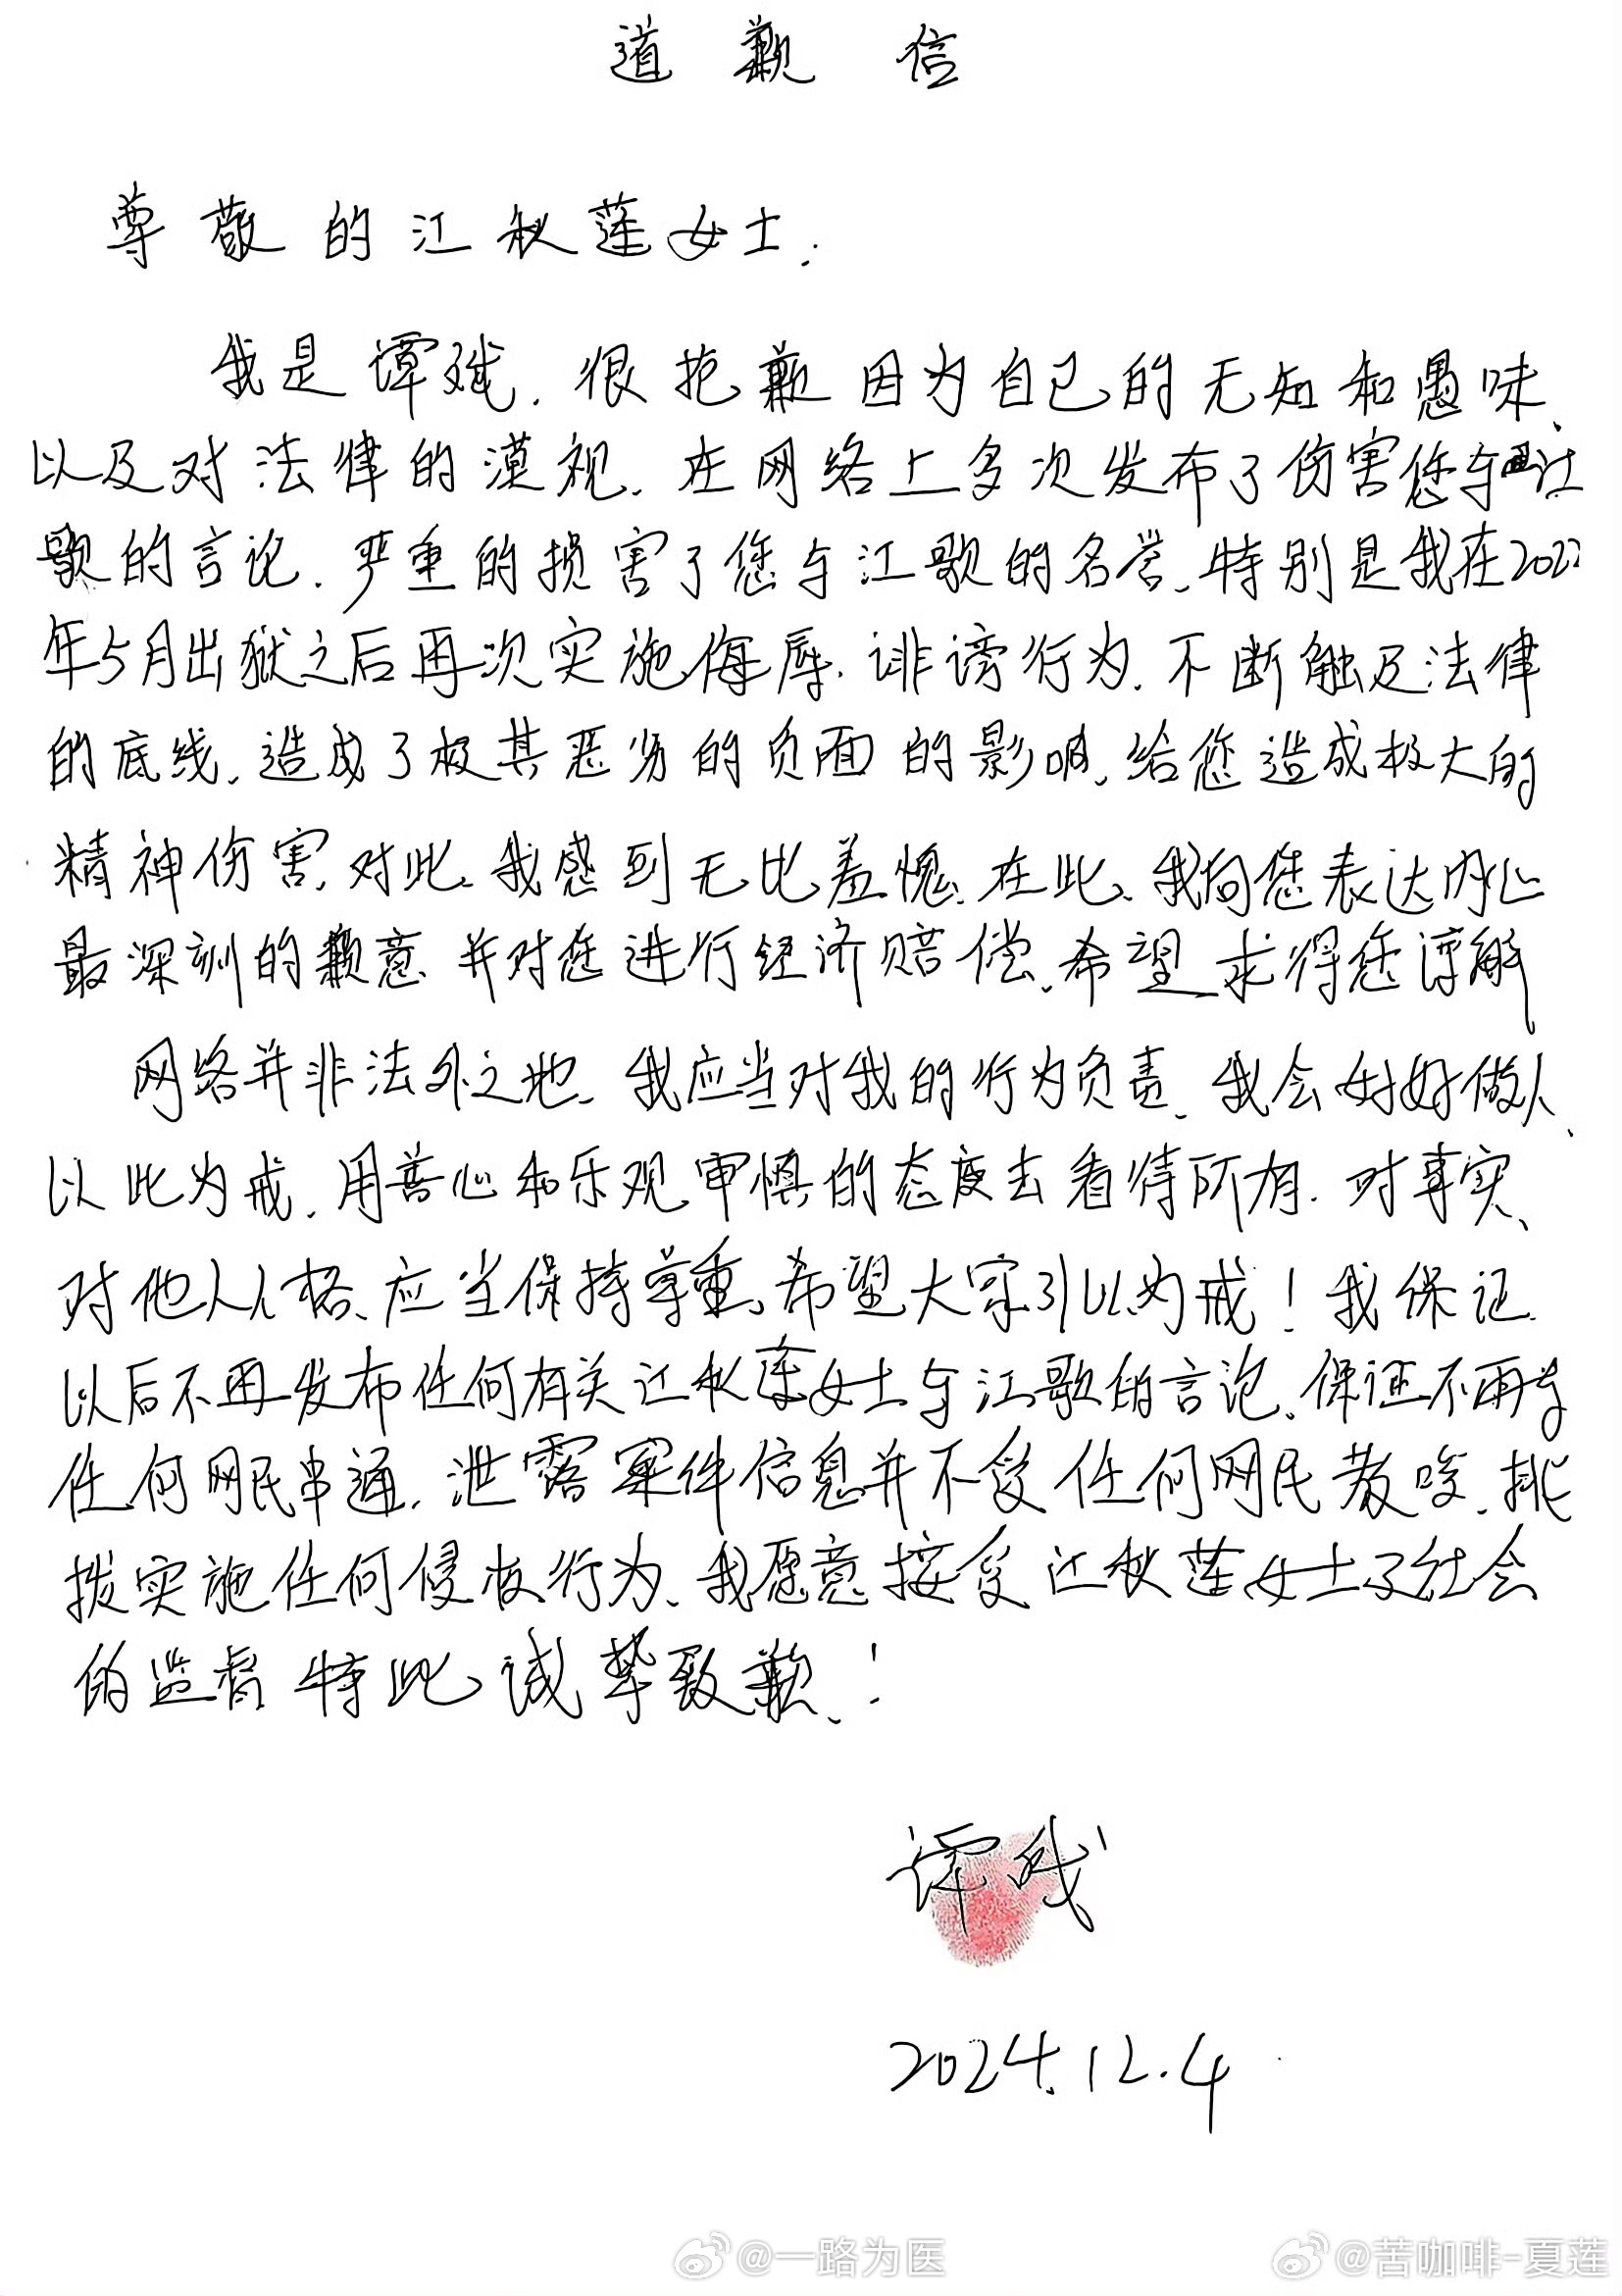 道歉信
尊敬的江秋莲女士:
我是谭斌.很抱歉因为自己的无知和愚昧、
以及对法律的漠视.在网络上多次发布了伤害您与江
歌的言论.严重的损害了您与江歌的名誉、特别是我在2022
年5月出狱之后再次实施侮辱.诽谤行为.不断触及法律
的底线、造成了极其恶劣的负面的影响、给您造成极大的
精神伤害、对此、我感到无比羞愧、在此、我向您表达内心
最深刻的歉意、并对您进行经济赔偿、希望求得您谅解
网络并非法外之地、我应当对我的行为负责、我会好好做人、
以此为戒.用善心和乐观审慎的态度去看待所有.对事实、
对他人人格、应当保持尊重、希望大家引以为戒!我保证
以后不再发布任何有关江秋莲女士与江歌的言论、保证不再与
任何网民串通.泄露案件信息并不受任何网民教唆、挑
拨实施任何侵权行为、我愿意接受江秋莲女士及社会
的监督特此诚挚致歉、!
谭斌
2024.12.4
@一路为医
@苦咖啡-夏莲